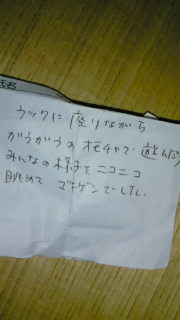 ラックに座りながら
ガラガラのオモチャで遊んだり
みんなの様子をニコニコ
眺めてゴキゲンでした。